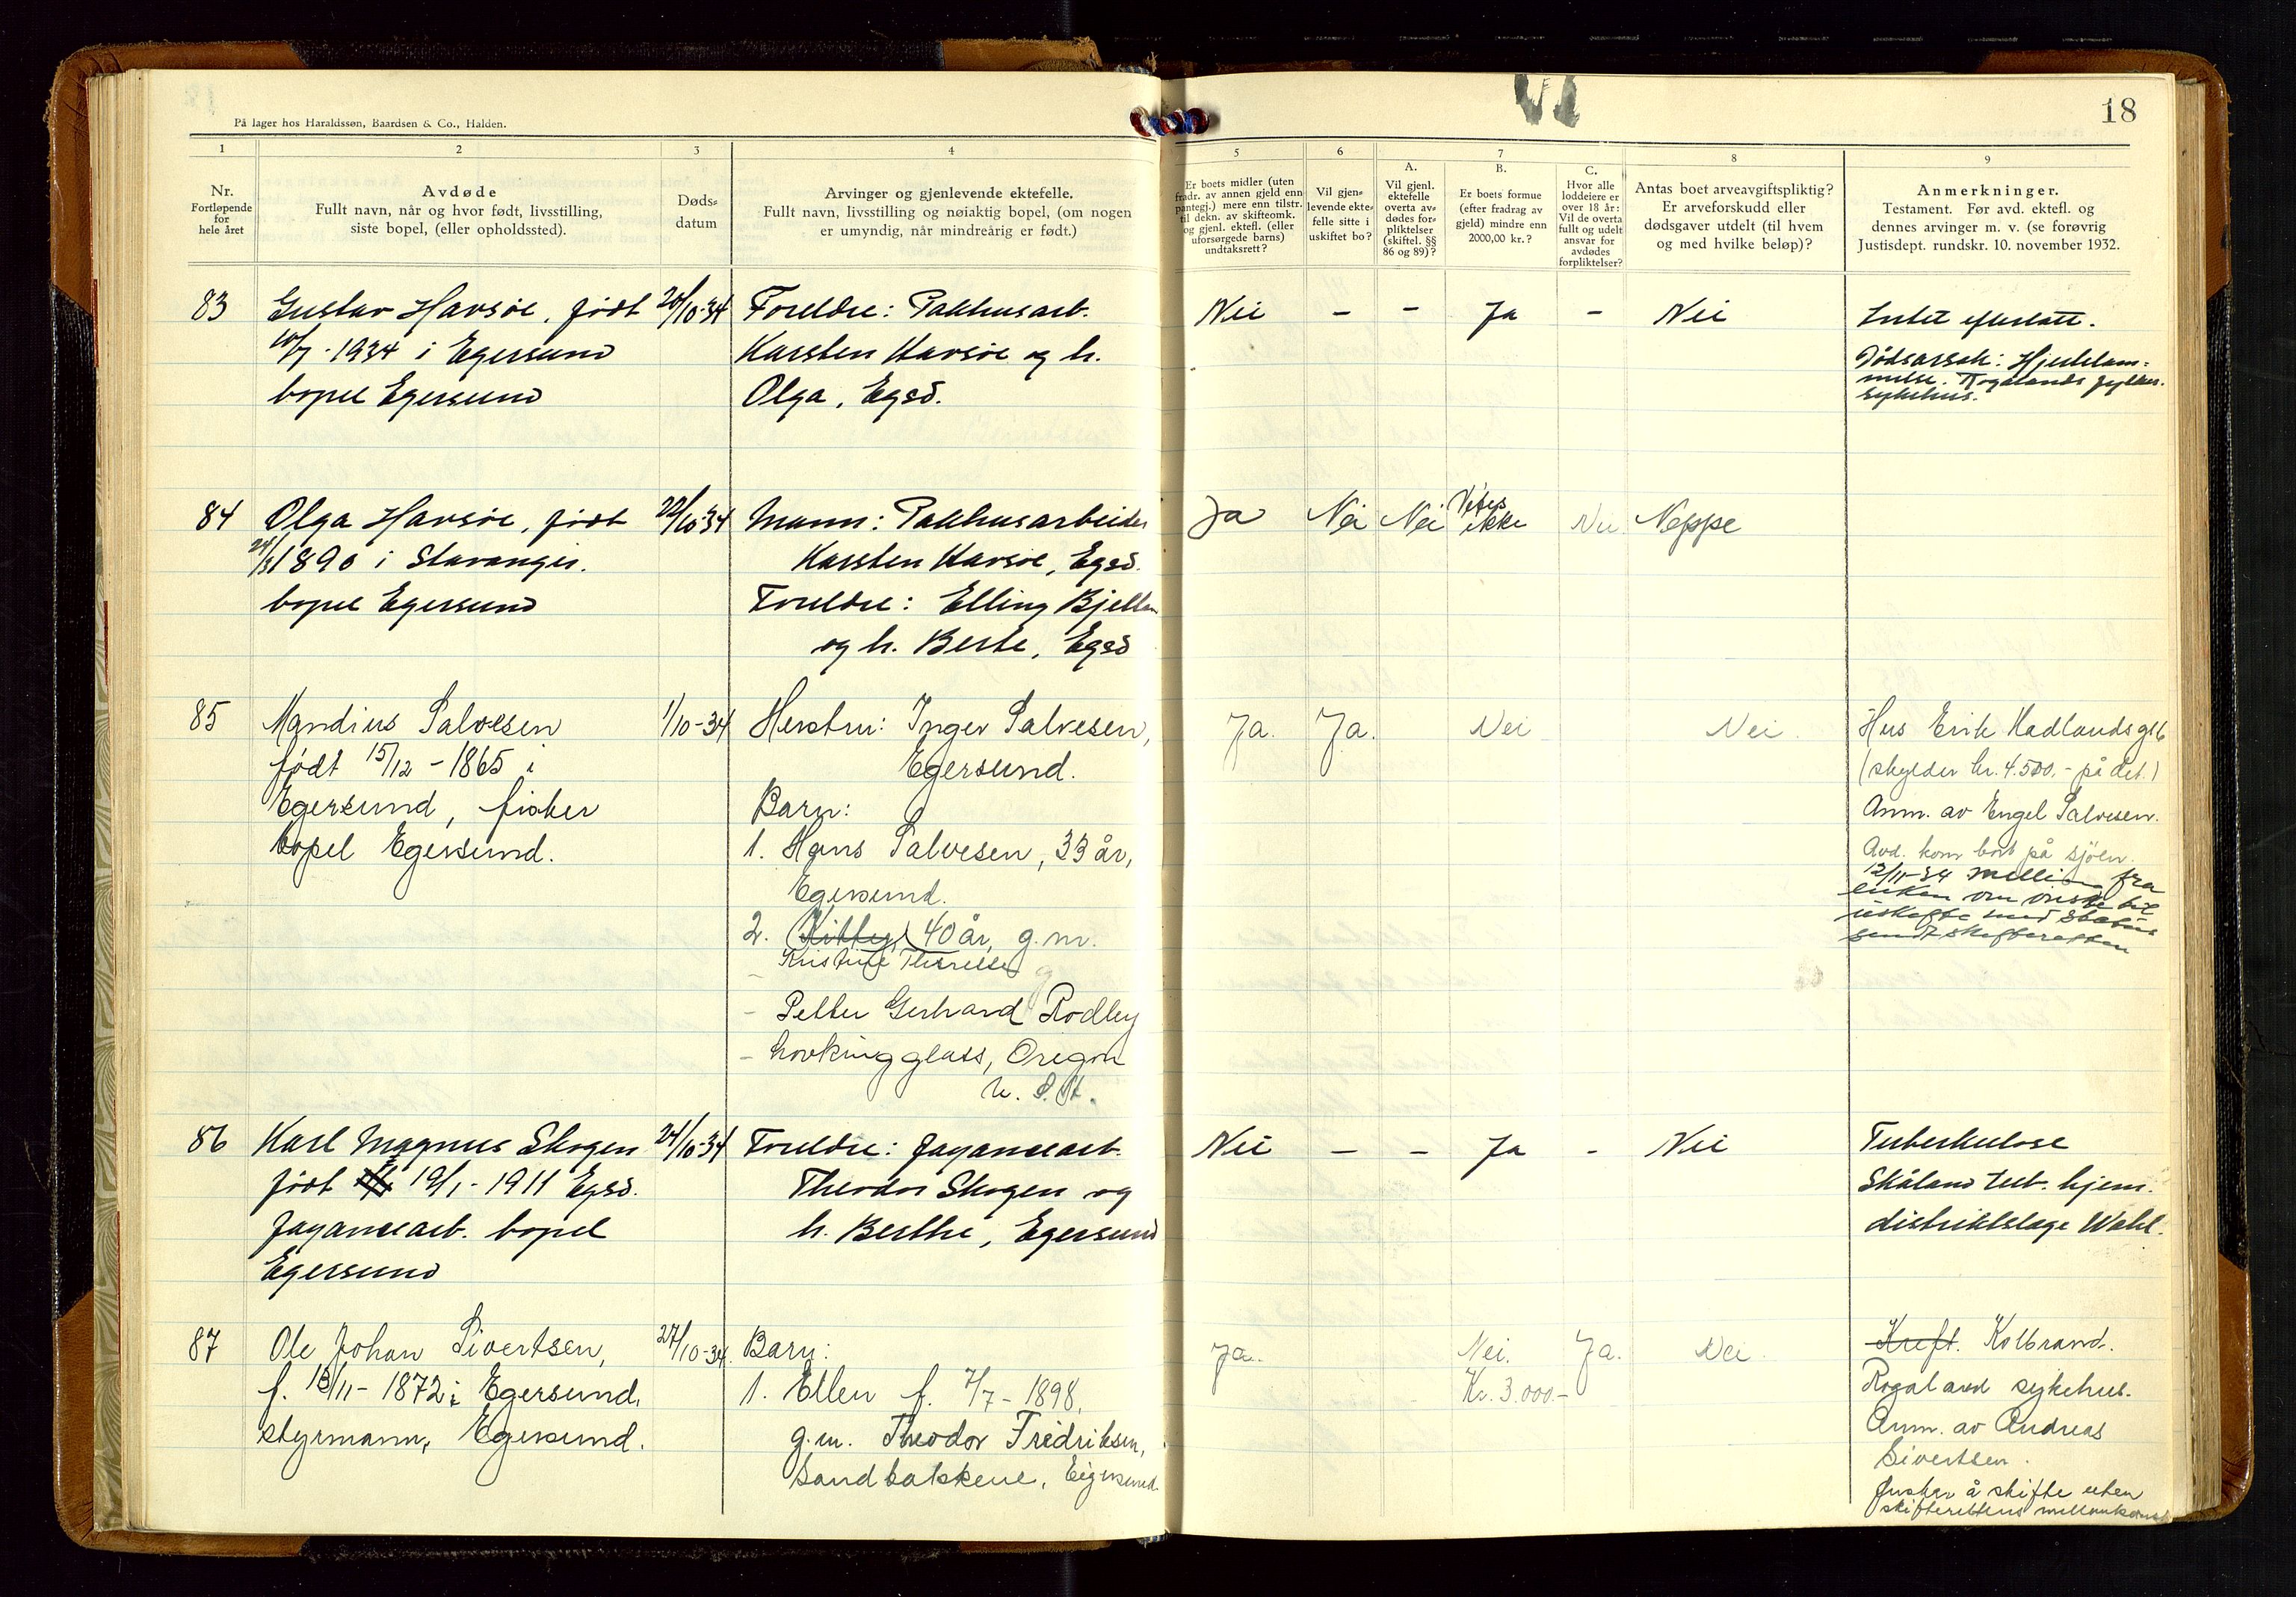 På lager hos Haraldssøn, Baardsen & Co., Halden.
18
1
2
3
4
5
6
7
8
9
Nr.
Fortløpende
for
hele året
Avdøde
Fullt navn, når og hvor født, livsstilling,
siste bopel, (eller opholdssted).
Døds-
datum
Arvinger og gjenlevende ektefelle.
Fullt navn, livsstilling og nøiaktig bopel, (om nogen
er umyndig, når mindreårig er født.)
Er boets midler (uten
fradr. av annen gjeld enn
pantegj.) mere enn tilstr.
til dekn. av skifteomk.
og gjenl. ektefl. (eller
uforsørgede barns)
undtaksrett?
Vil gjen-
levende ekte-
felle sitte i
uskiftet bo?
A.
Vil gjenl.
ektefelle
overta av-
dødes for-
pliktelser
(skiftel. §§
86 og 89)?
B.
Er boets formue
(efter fradrag av
gjeld) mindre enn
2000,00 kr.?
C.
Hvor alle
loddeiere er
over 18 år:
Vil de overta
fullt og udelt
ansvar for
avdødes
forpliktelser?
Antas boet arveavgiftspliktig?
Er arveforskudd eller
dødsgaver utdelt (til hvem
og med hvilke beløp)?
Anmerkninger.
Testament. Før avd. ektefl. og
dennes arvinger m. v. (se forøvrig
Justisdept. rundskr. 10. november 1932.
83
Gustav Havsøe, født
10/7-1934 i Egersund
bopel Egersund
20/10-34
Foreldre: Pakhusarb.
Karsten Havsøe og h.
Olga, Egsd.
Nei - - Ja - Nei
Intet efterlatt.
Dødsarsak: Hjertelam-
melse. Rogalands fylkes.
sykehus.
84
Olga Havsøe, født
24/3 1890 i Stavanger.
bopel Egersund
22/10-34
Mann: Pakhusarbeider
Karsten Havsøe, Egsd.
Foreldre: Elling Bjelland
og h. Berte, Egsd
Ja Nei Nei Vites
ikke Nei Neppe
85
Mandius Salvesen
født 15/12-1865 i
Egersund, fisker
bopel Egersund.
1/10-34
Hustru: Inger Salvesen,
Egersund.
Barn:
1. Hans Salvesen, 33 år,
Egersund.
2. Kitty, 40 år, g.m.
Kristine Therese
- Petter Gerhard Rodley
- hovkingglass, Oregon
U. S. A.
Ja. Ja. Nei Nei.
Hus Erik Hadlandsgt 6
(skylder kr. 4.500.- på det.)
Anm. av Engel Salvesen.
Avd. kom bort på sjöen.
12/11-34 melding fra
enken om ønske til
uskifte med status
sendt skifteretten
86
Karl Magnus Skogen
født 19/1-1911 Egsd.
Fayancearb. bopel
Egersund
24/10-34
Foreldre: Fayancearb.
Theodor Skogen og
h. Berthe, Egersund
Nei - - Ja - Nei
Tuberkulose
Skåland tub. hjem.
distriktslege Wahl.
87
Ole Johan Sivertsen,
f. 13/11-1872 i Egersund,
styrmann, Egersund.
27/10-34.
Barn:
1. Ellen f. 7/7-1898,
g.m. Theodor Fredriksen,
Sandbakkene, Eigersund.
Ja. Nei. Ja. Nei.
Kr. 3.000-
Kreft. Kolbrand.
Rogaland sykehus.
Anm. av Andreas
Sivertsen.
Ønsker å skifte uten
skifterettens mellomkomst